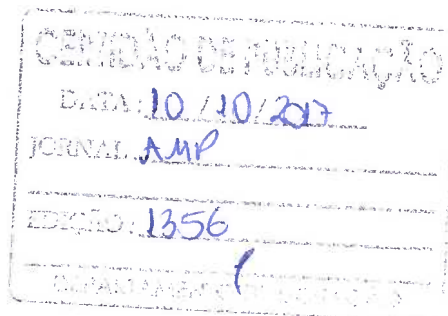 CERTIDÃO DE PUBLICAÇÃO
DATA: 10 / 10 / 2017
JORNAL: AMP
EDIÇÃO: 1356